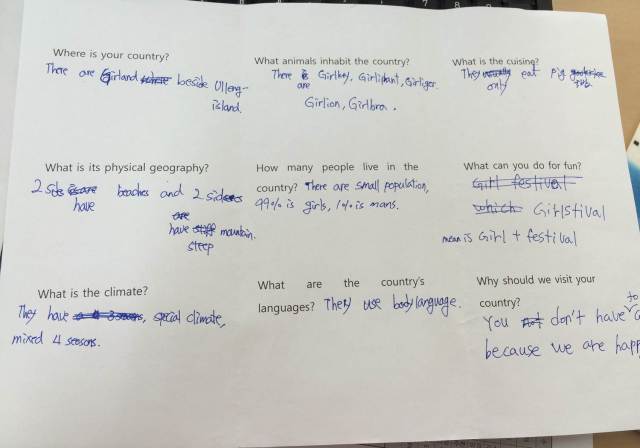 7 8 9
Where is your country?
There are Girland beside Ulleng-
island.
What animals inhabit the country?
There are Girlkey, Girliphant, Girliger.
Girlion, Girlbra.
What is the cuisine?
They only eat pig
What is its physical geography?
2 sides have beaches and 2 sides
have steep mountain.
How many people live in the
country? There are small population,
99% is girls, 1% is mans.
What can you do for fun?
Girl festival
which Girlstival
mean is Girl + festival
What is the climate?
They have special climate,
mixed 4 seasons.
What are the country's
languages? They use body language.
Why should we visit your
country?
You don't have to
because we are happ